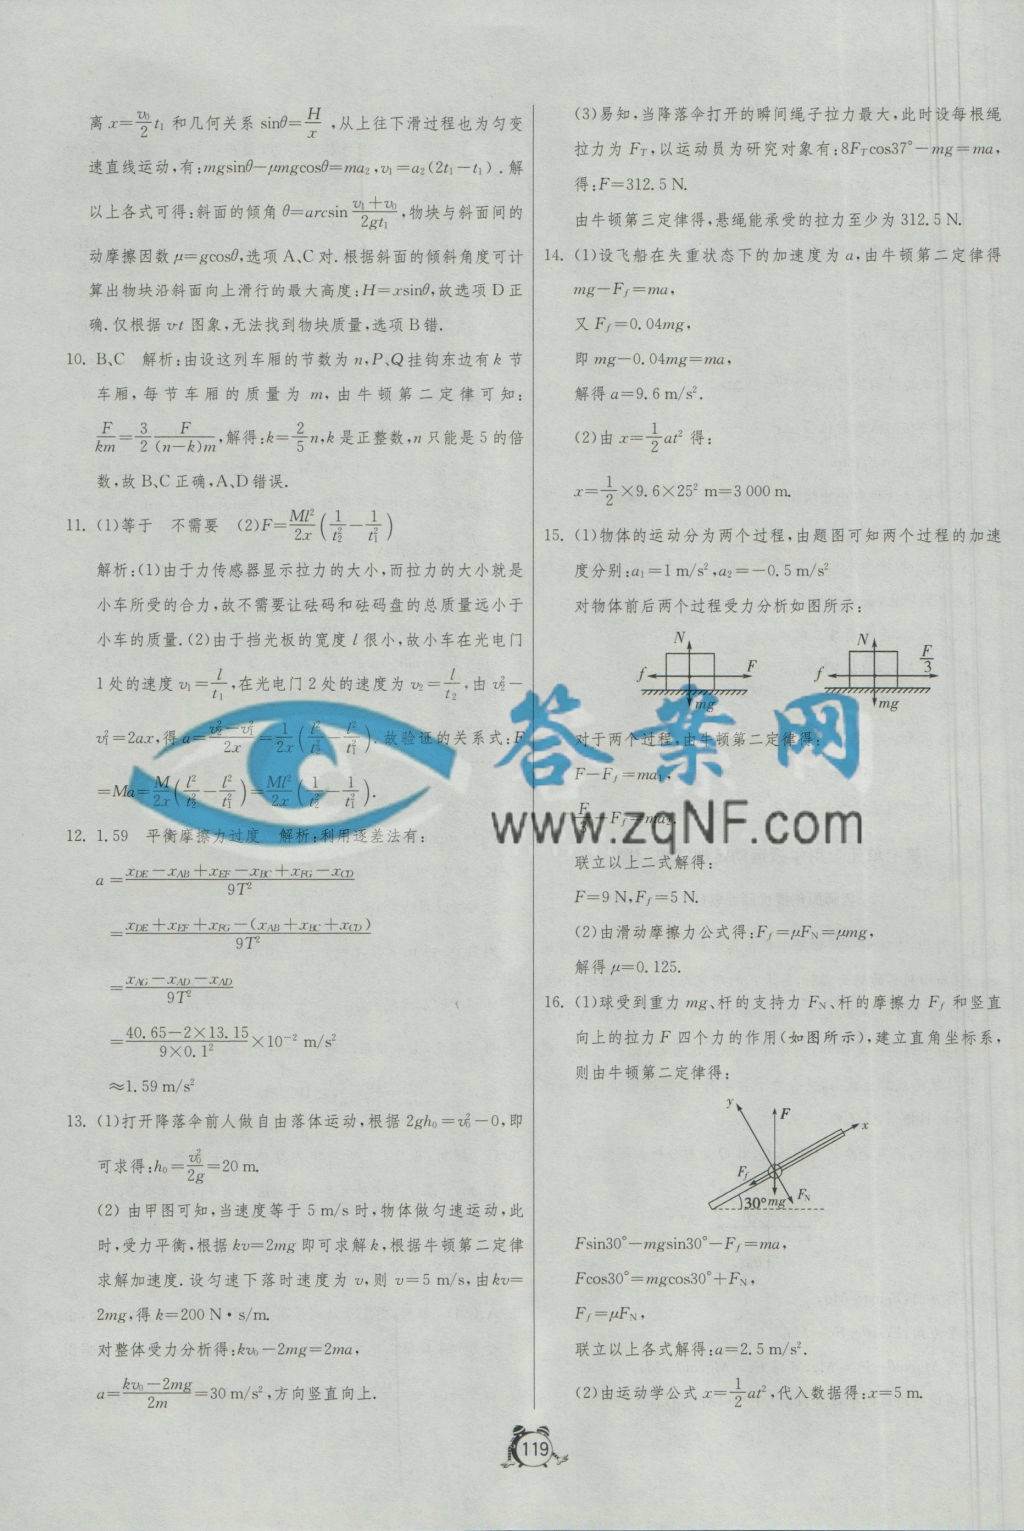 离 x=v₀/2 t₁ 和几何关系 sinθ=H/x ,从上往下滑过程也为匀变
速直线运动,有:mgsinθ−μmgcosθ=ma₂,v₁=a₂(2t₁−t₁) .解
以上各式可得:斜面的倾角 θ=arcsin (v₁+v₀)/(2gt₁),物块与斜面间的
动摩擦因数 μ=gcosθ,选项 A、C 对.根据斜面的倾斜角度可计
算出物块沿斜面向上滑行的最大高度:H=xsinθ,故选项 D 正
确.仅根据 v-t 图象,无法找到物块质量,选项 B 错.
10. B、C 解析:由设这列车厢的节数为 n,P、Q 挂钩东边有 k 节
车厢,每节车厢的质量为 m,由牛顿第二定律可知:
F/(km)=3/2 F/((n−k)m),解得:k=2/5 n,k 是正整数,n 只能是 5 的倍
数,故 B、C 正确,A、D 错误.
11. (1)等于 不需要 (2)F=Ml²/(2x) (1/t₂²−1/t₁²)
解析:(1)由于力传感器显示拉力的大小,而拉力的大小就是
小车所受的合力,故不需要让砝码和砝码盘的总质量远小于
小车的质量.(2)由于挡光板的宽度 l 很小,故小车在光电门
1 处的速度 v₁=l/t₁,在光电门 2 处的速度为 v₂=l/t₂,由 v₂²−
v₁²=2ax,得 a=(v₂²−v₁²)/(2x)=1/(2x) (l²/t₂²−l²/t₁²).故验证的关系式:F
=Ma=M/(2x) (l²/t₂²−l²/t₁²)=Ml²/(2x) (1/t₂²−1/t₁²).
12. 1.59 平衡摩擦力过度 解析:利用逐差法有:
a=(x_DE−x_AB+x_EF−x_BC+x_FG−x_CD)/(9T²)
=(x_DE+x_EF+x_FG−(x_AB+x_BC+x_CD))/(9T²)
=(x_AG−x_AD−x_AD)/(9T²)
=(40.65−2×13.15)/(9×0.1²)×10⁻² m/s²
≈1.59 m/s²
13. (1)打开降落伞前人做自由落体运动,根据 2gh₀=v₀²−0,即
可求得:h₀=v₀²/(2g)=20 m.
(2) 由甲图可知,当速度等于 5 m/s 时,物体做匀速运动,此
时,受力平衡,根据 kv=2mg 即可求解 k,根据牛顿第二定律
求解加速度.设匀速下落时速度为 v,则 v=5 m/s,由kv=
2mg,得 k=200 N·s/m.
对整体受力分析得:kv₀−2mg=2ma,
a=(kv₀−2mg)/(2m)=30 m/s²,方向竖直向上.
(3)易知,当降落伞打开的瞬间绳子拉力最大,此时设每根绳
拉力为 F_T,以运动员为研究对象有:8F_Tcos37°−mg=ma,
得:F=312.5 N.
由牛顿第三定律得,悬绳能承受的拉力至少为 312.5 N.
14. (1)设飞船在失重状态下的加速度为 a,由牛顿第二定律得
mg−F_f=ma,
又 F_f=0.04mg,
即 mg−0.04mg=ma,
解得 a=9.6 m/s².
(2)由 x=1/2 at² 得:
x=1/2×9.6×25² m=3 000 m.
15. (1)物体的运动分为两个过程,由题图可知两个过程的加速
度分别:a₁=1 m/s²,a₂=−0.5 m/s²
对物体前后两个过程受力分析如图所示:
N f F mg
N f F/3 mg
对于两个过程,由牛顿第二定律得:
F−F_f=ma₁,
F/3−F_f=ma₂.
联立以上二式解得:
F=9 N,F_f=5 N.
(2)由滑动摩擦力公式得:F_f=μF_N=μmg,
解得 μ=0.125.
16. (1)球受到重力 mg、杆的支持力 F_N、杆的摩擦力 F_f 和竖直
向上的拉力 F 四个力的作用(如图所示),建立直角坐标系,
则由牛顿第二定律得:
y F x F_f 30° mg F_N
Fsin30°−mgsin30°−F_f=ma,
Fcos30°=mgcos30°+F_N,
F_f=μF_N,
联立以上各式解得:a=2.5 m/s².
(2)由运动学公式 x=1/2 at²,代入数据得:x=5 m.
119
答案网
www.zqNF.com